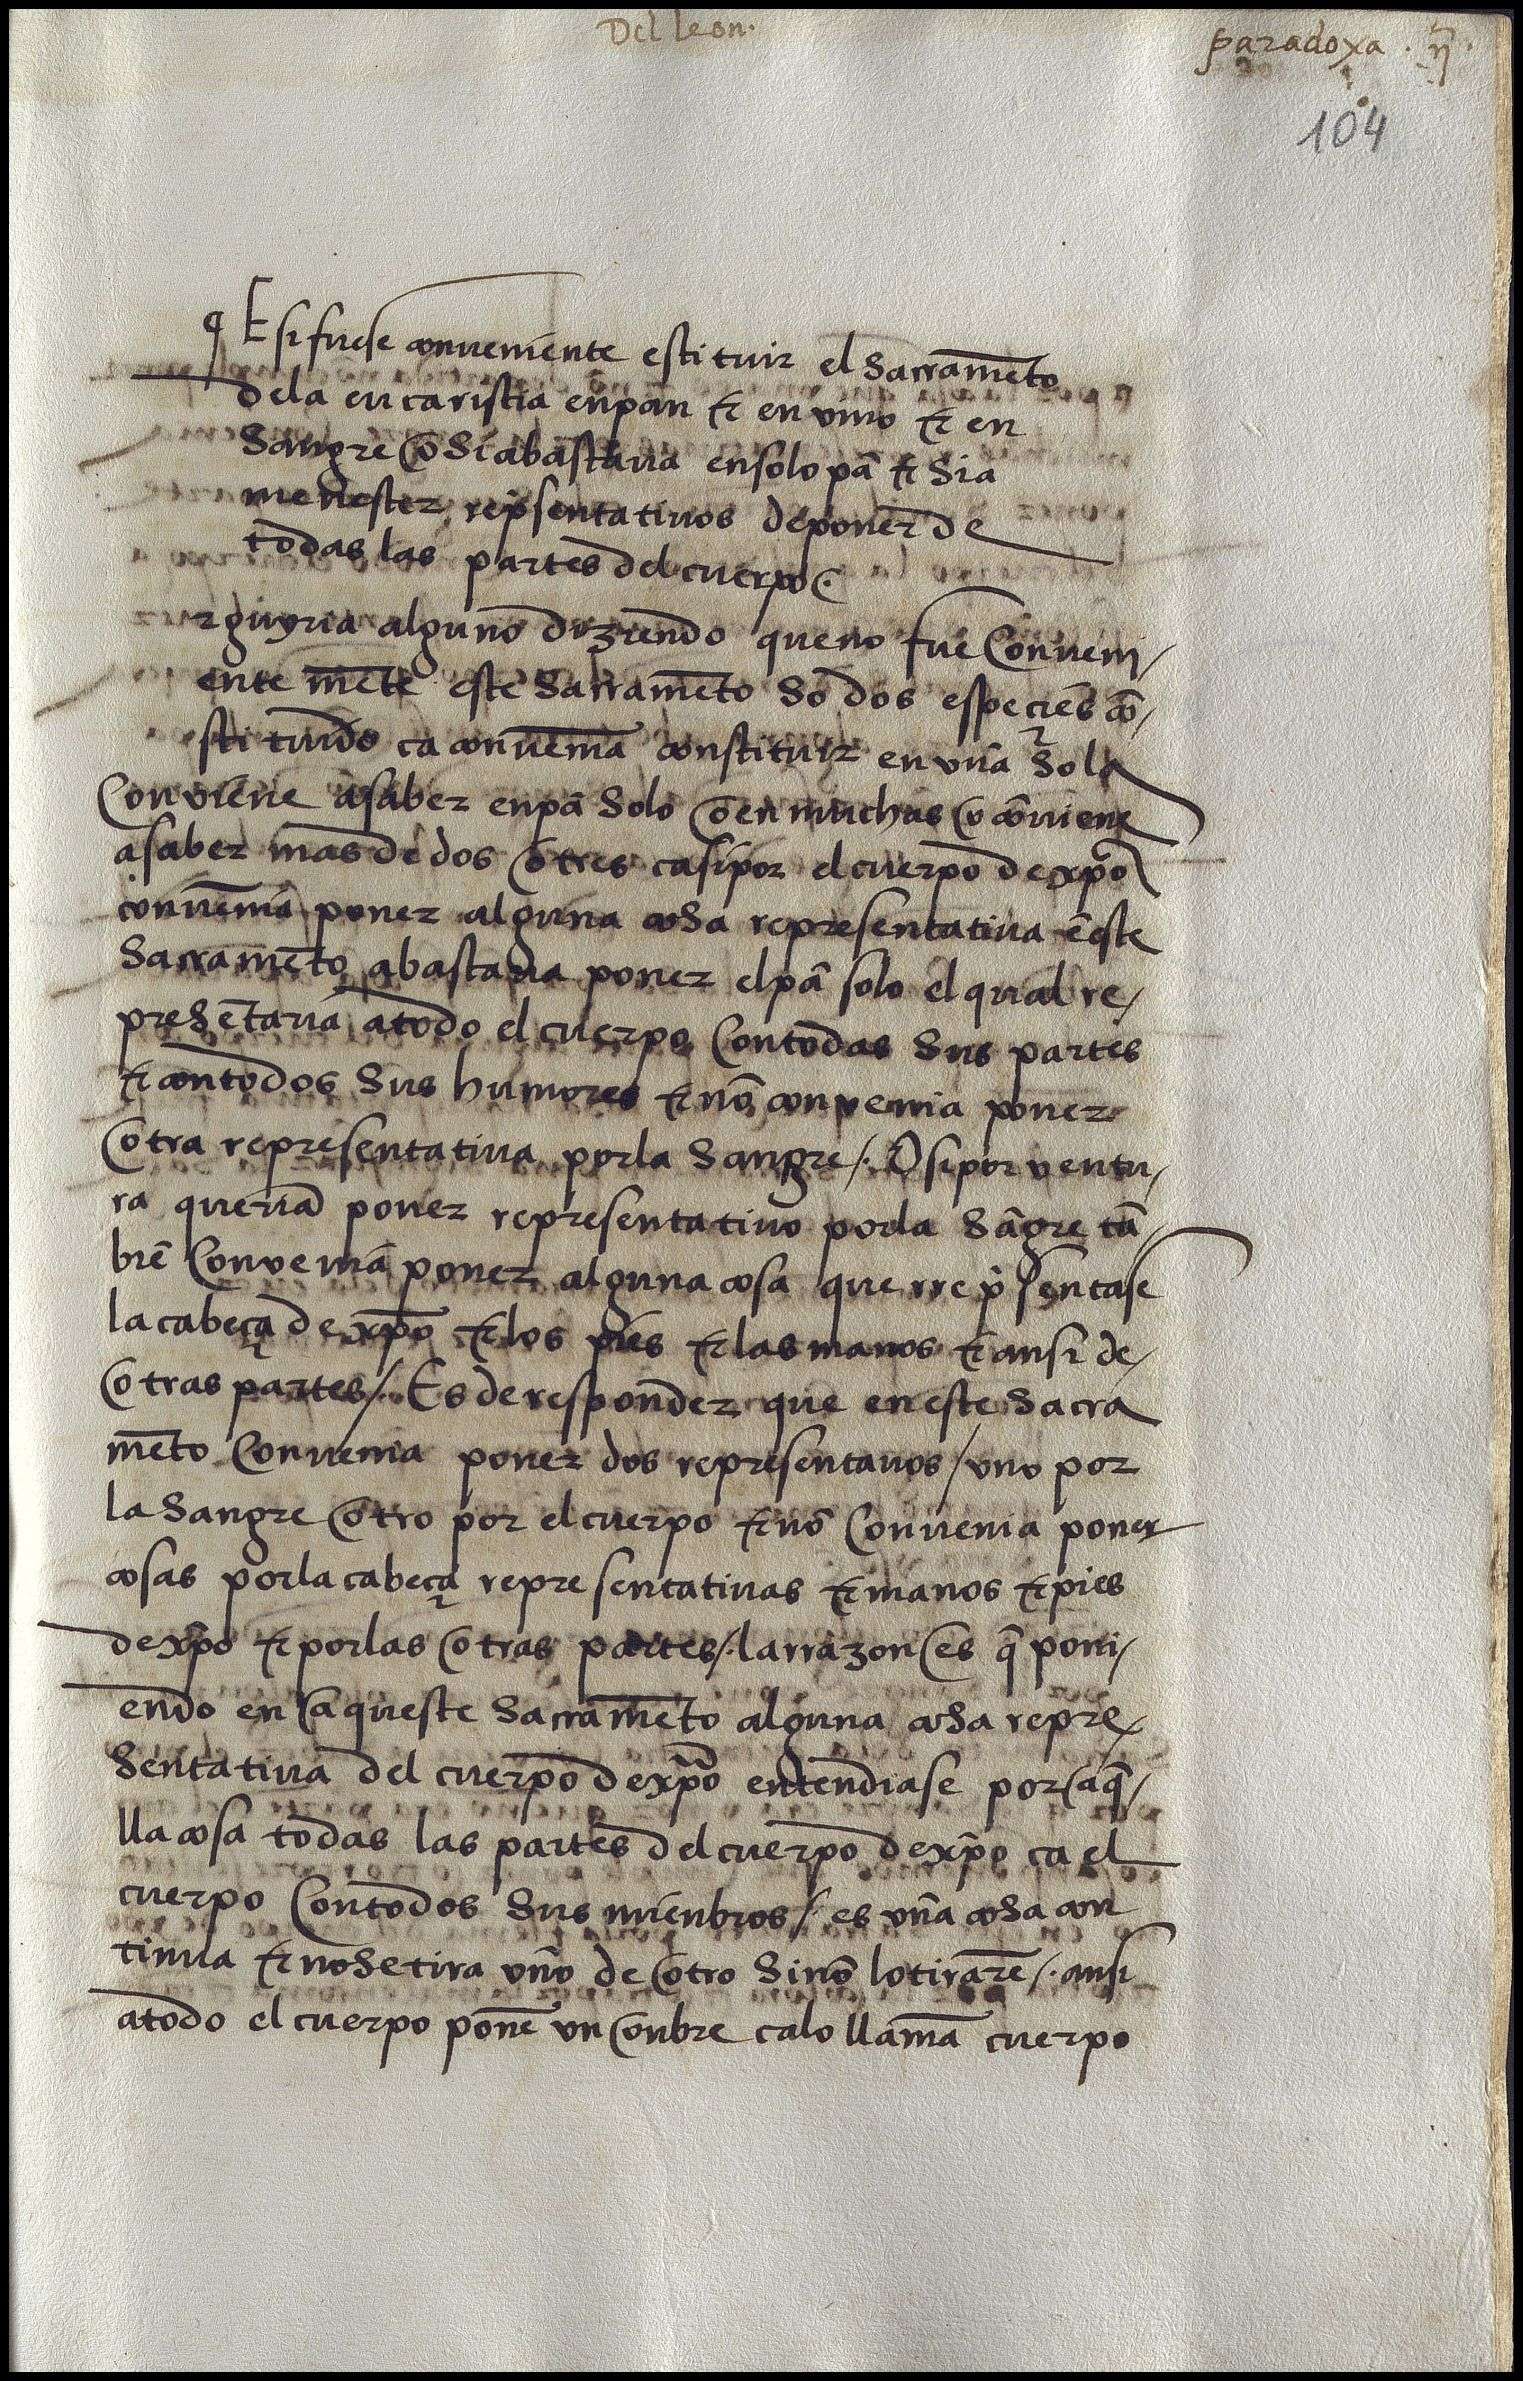 Del leon.
paradoxa . ij .
104
¶ E si fuese conueniente estituir el Sacramẽto
dela eucaristia en pan & en vino & en
Sangre o Si abastaua en solo pã & Si a
menester rep̃sentatiuos de poner de
todas las partes del cuerpo.
rguyria alguno diziendo que no fue Conueni/
ente mẽte este Sacramẽto So dos especies cõ/
stituido ca conuenia constituir en vna Sola
Conviene a saber en pã Solo o en muchas cõuiene
a saber mas de dos o tres ca si por el cuerpo de xp̃o
conuenia poner alguna cosa representatiua ẽ este
Sacramẽto abastaua poner el pã solo el qual re/
presẽtaria a todo el cuerpo Con todas Sus partes
& con todos Sus humores & nõ conuenia poner
otra representatiua por la Sangre/. O si por ventu/
ra queria poner representatiuo por la Sãgre tã/
biẽ Convenia poner alguna cosa que rrep̃sentase
la cabeça de xp̃o & los pies & las manos & ansi de/
otras partes/. Es de responder que en este Sacra
mẽto Conuenia poner dos representauos / vno por
la Sangre otro por el cuerpo & nõ Conuenia poner
cosas por la cabeça representatiuas & manos & pies
de xp̃o & por las otras partes/. la rrazon es q̃ poni/
endo en aqueste Sacramẽto alguna cosa repre/
Sentatiua del cuerpo de xp̃o entendiase por aq̃/
lla cosa todas las partes del cuerpo de xp̃o ca el
cuerpo Con todos Sus mienbros / es vna cosa con
tinua & no Se tira vno de otro Si nõ lo tirarẽ/. ansi
a todo el cuerpo ponẽ vn onbre ca lo llamã cuerpo